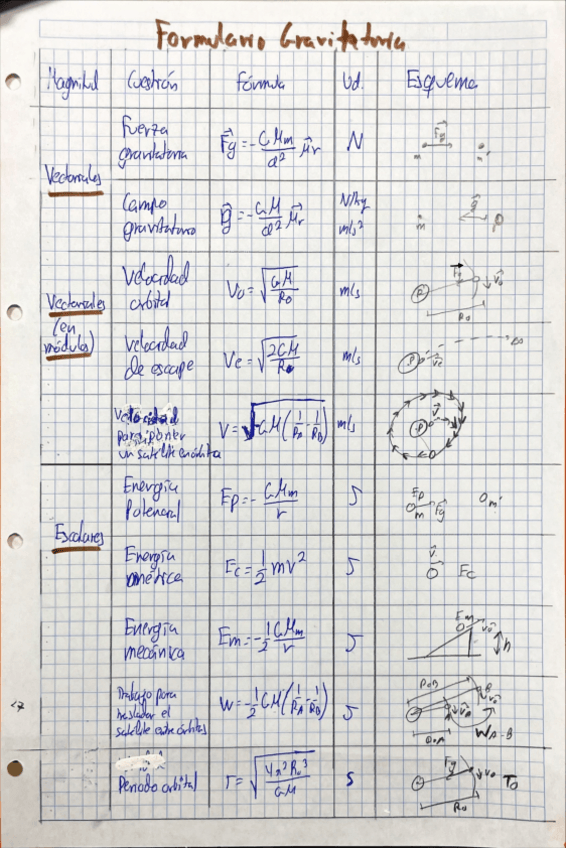 Formulario Gravitatoria
Magnitud Cuestión Fórmula Ud. Esquema
Vectoriales
Fuerza gravitatoria F⃗g = - GMm/d² μ⃗r N
F⃗g m m'
Campo gravitatorio g⃗ = - GM/d² μ⃗r N/kg m/s²
m g⃗ P
Vectoriales (en módulo)
Velocidad orbital Vo = √(GM/Ro) m/s
Fg v⃗o Ro
velocidad de escape Ve = √(2GM/Ro) m/s
P ve ∞
Velocidad para poner un satélite en órbita V = √(GM(1/RA - 1/RB)) m/s
P v⃗
Escalares
Energía Potencial Ep = - GMm/r J
Ep m Fg m'
Energía cinética Ec = 1/2 mv² J
v⃗ Ec
Energía mecánica Em = - 1/2 GMm/r J
Em v⃗o h
Trabajo para trasladar el satélite entre órbitas W = - 1/2 GM(1/RA - 1/RB) J
RoB B WA-B
Periodo orbital T = √(4π²Ro³/GM) s
Fg vo To Ro